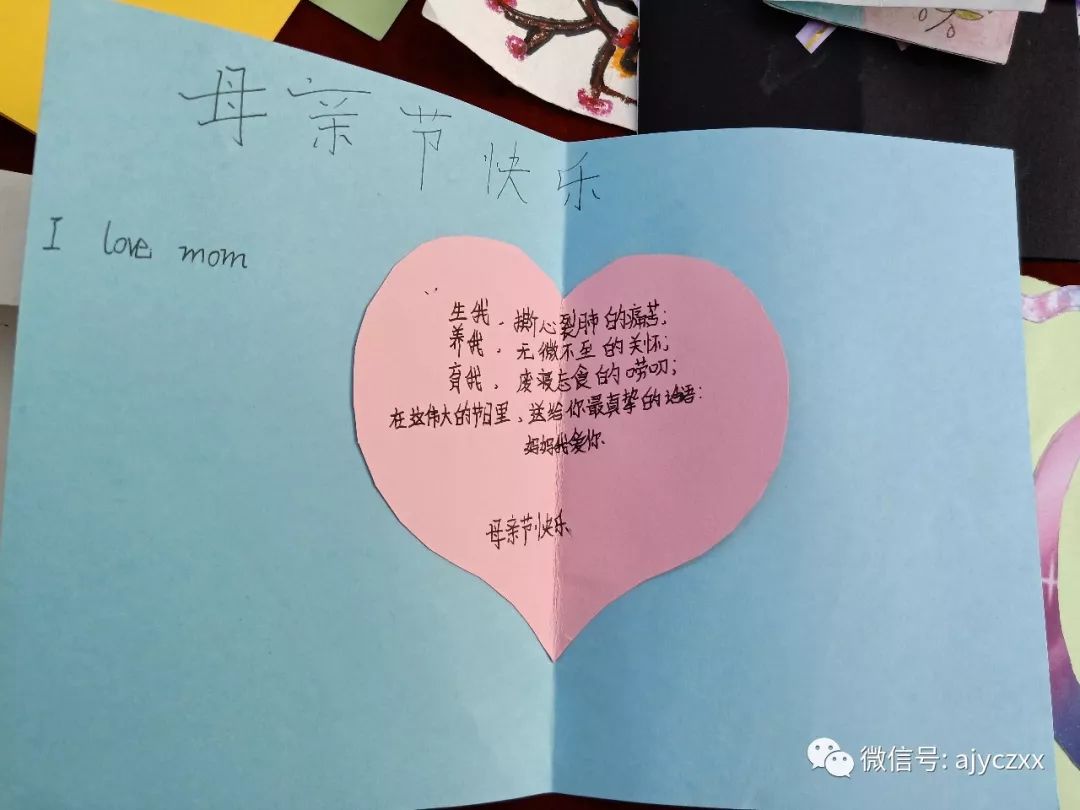 母亲节快乐
I love mom
生我，撕心裂肺的痛苦；
养我，无微不至的关怀；
育我，废寝忘食的唠叨；
在这伟大的节日里，送给你最真挚的话语：
妈妈我爱你
母亲节快乐
微信号: ajyczxx